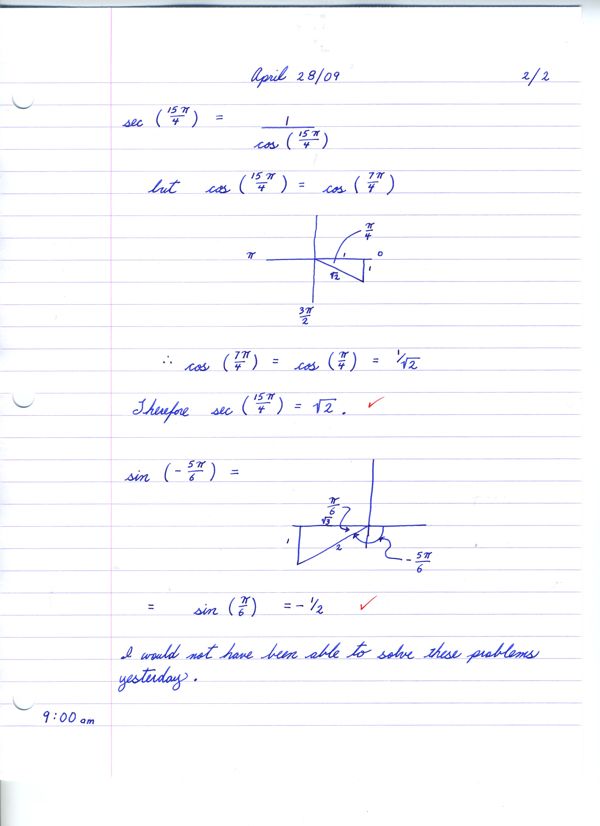 April 28/09 2/2
sec (15π/4) = 1/cos (15π/4)
but cos (15π/4) = cos (7π/4)
π/4
π 1 0
√2 1
3π/2
∴ cos (7π/4) = cos (π/4) = 1/√2
Therefore sec (15π/4) = √2. ✓
sin (-5π/6) =
π/6
√3
1 2
-5π/6
= sin (π/6) = -1/2 ✓
I would not have been able to solve these problems
yesterday.
9:00 am